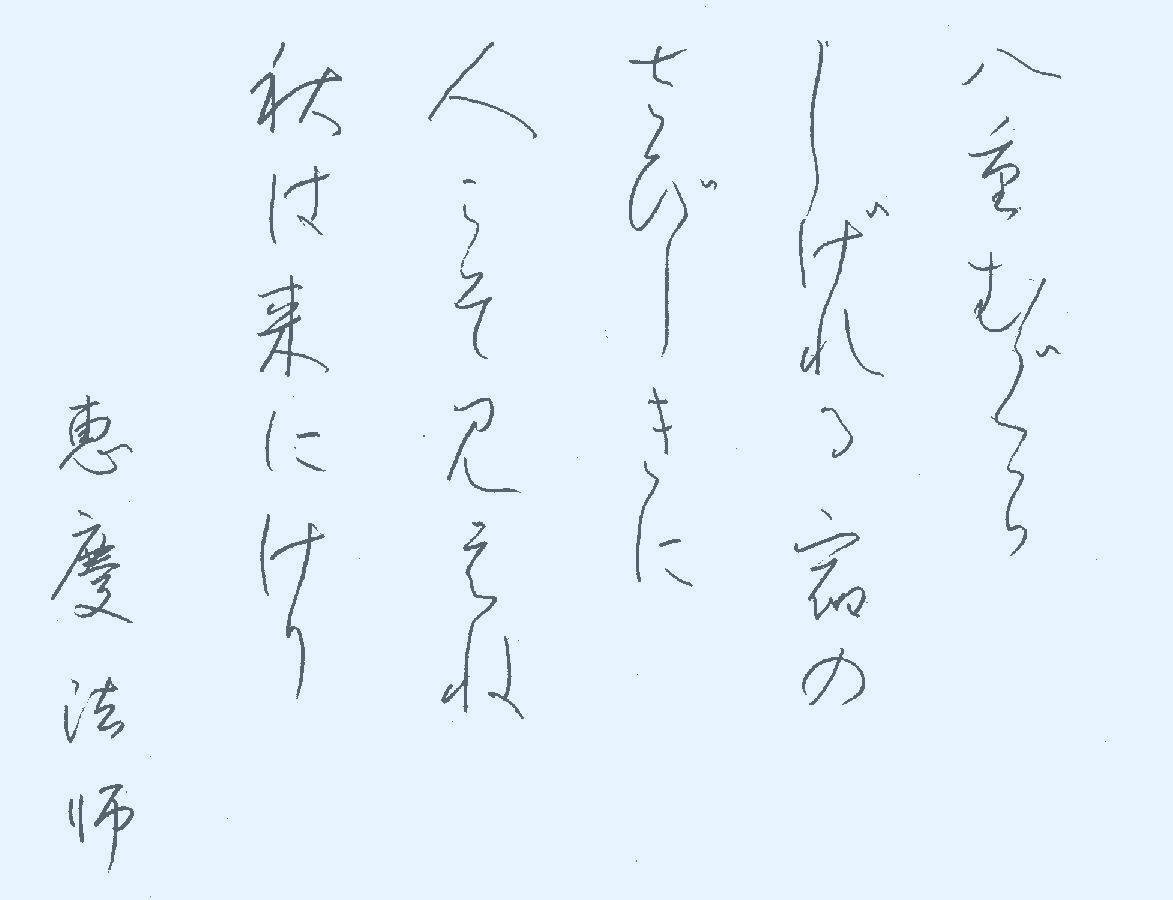 八重むぐら
しげれる宿の
さびしきに
人こそ見えね
秋は来にけり
恵慶法師